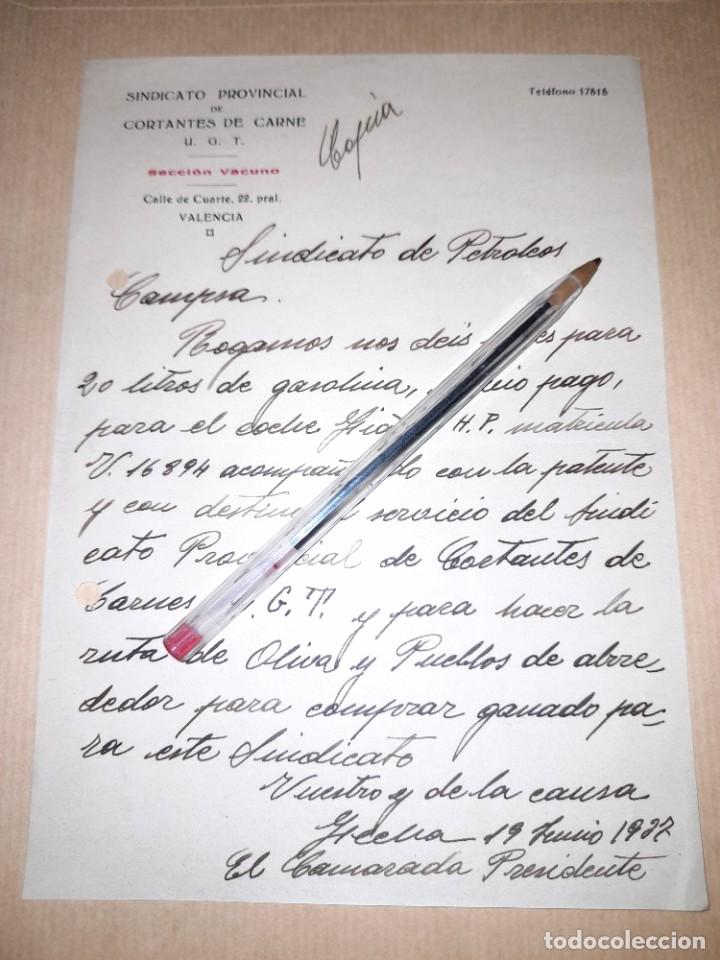 SINDICATO PROVINCIAL
DE
CORTANTES DE CARNE
U. G. T.
Sección Vacuno
Calle de Cuarte, 22, pral.
VALENCIA
Teléfono 17515
Copia
Sindicato de Petroleos
Campsa.
Rogamos nos deis para
20 litros de gasolina, pago,
para el coche H.P. matricula
V. 16894 con la patente
y con servicio del Sindi
cato Provincial de Cortantes de
Carnes G. T. y para hacer la
ruta de Oliva y Pueblos de alrre-
dedor para comprar ganado pa-
ra este Sindicato
Vuestro y de la causa
Fecha 19 Junio 1937
El Camarada Presidente
todocoleccion
todocoleccion.net